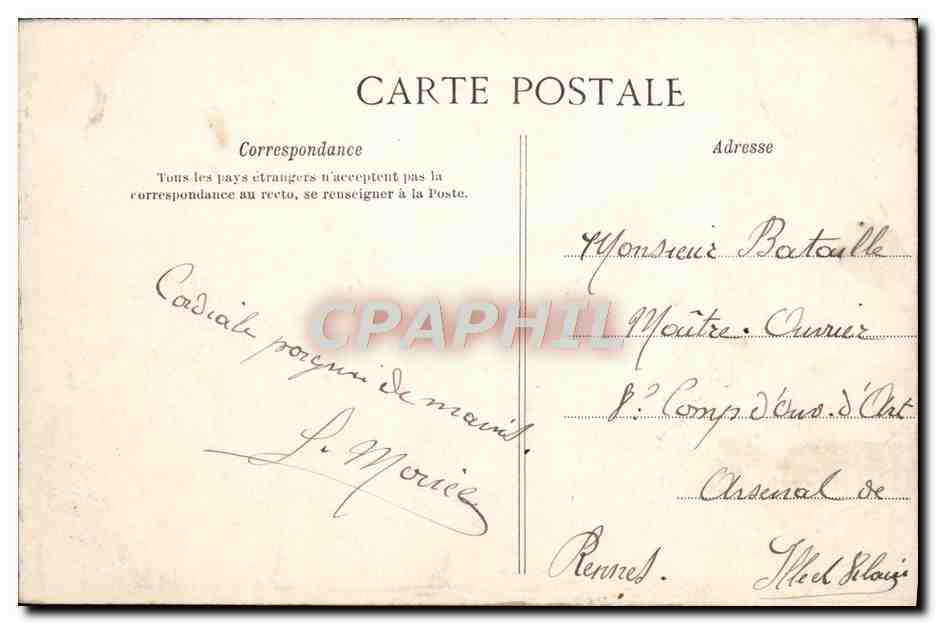 CARTE POSTALE
Correspondance
Tous les pays étrangers n'acceptent pas la
correspondance au recto, se renseigner à la Poste.
Adresse
Cordiale poignée de mains.
L. Morice
Monsieur Bataille
Maître-Ouvrier
8e Comp d'ouv. d'Art
Arsenal de
Rennes. Ille et Vilaine
CPAPHIL